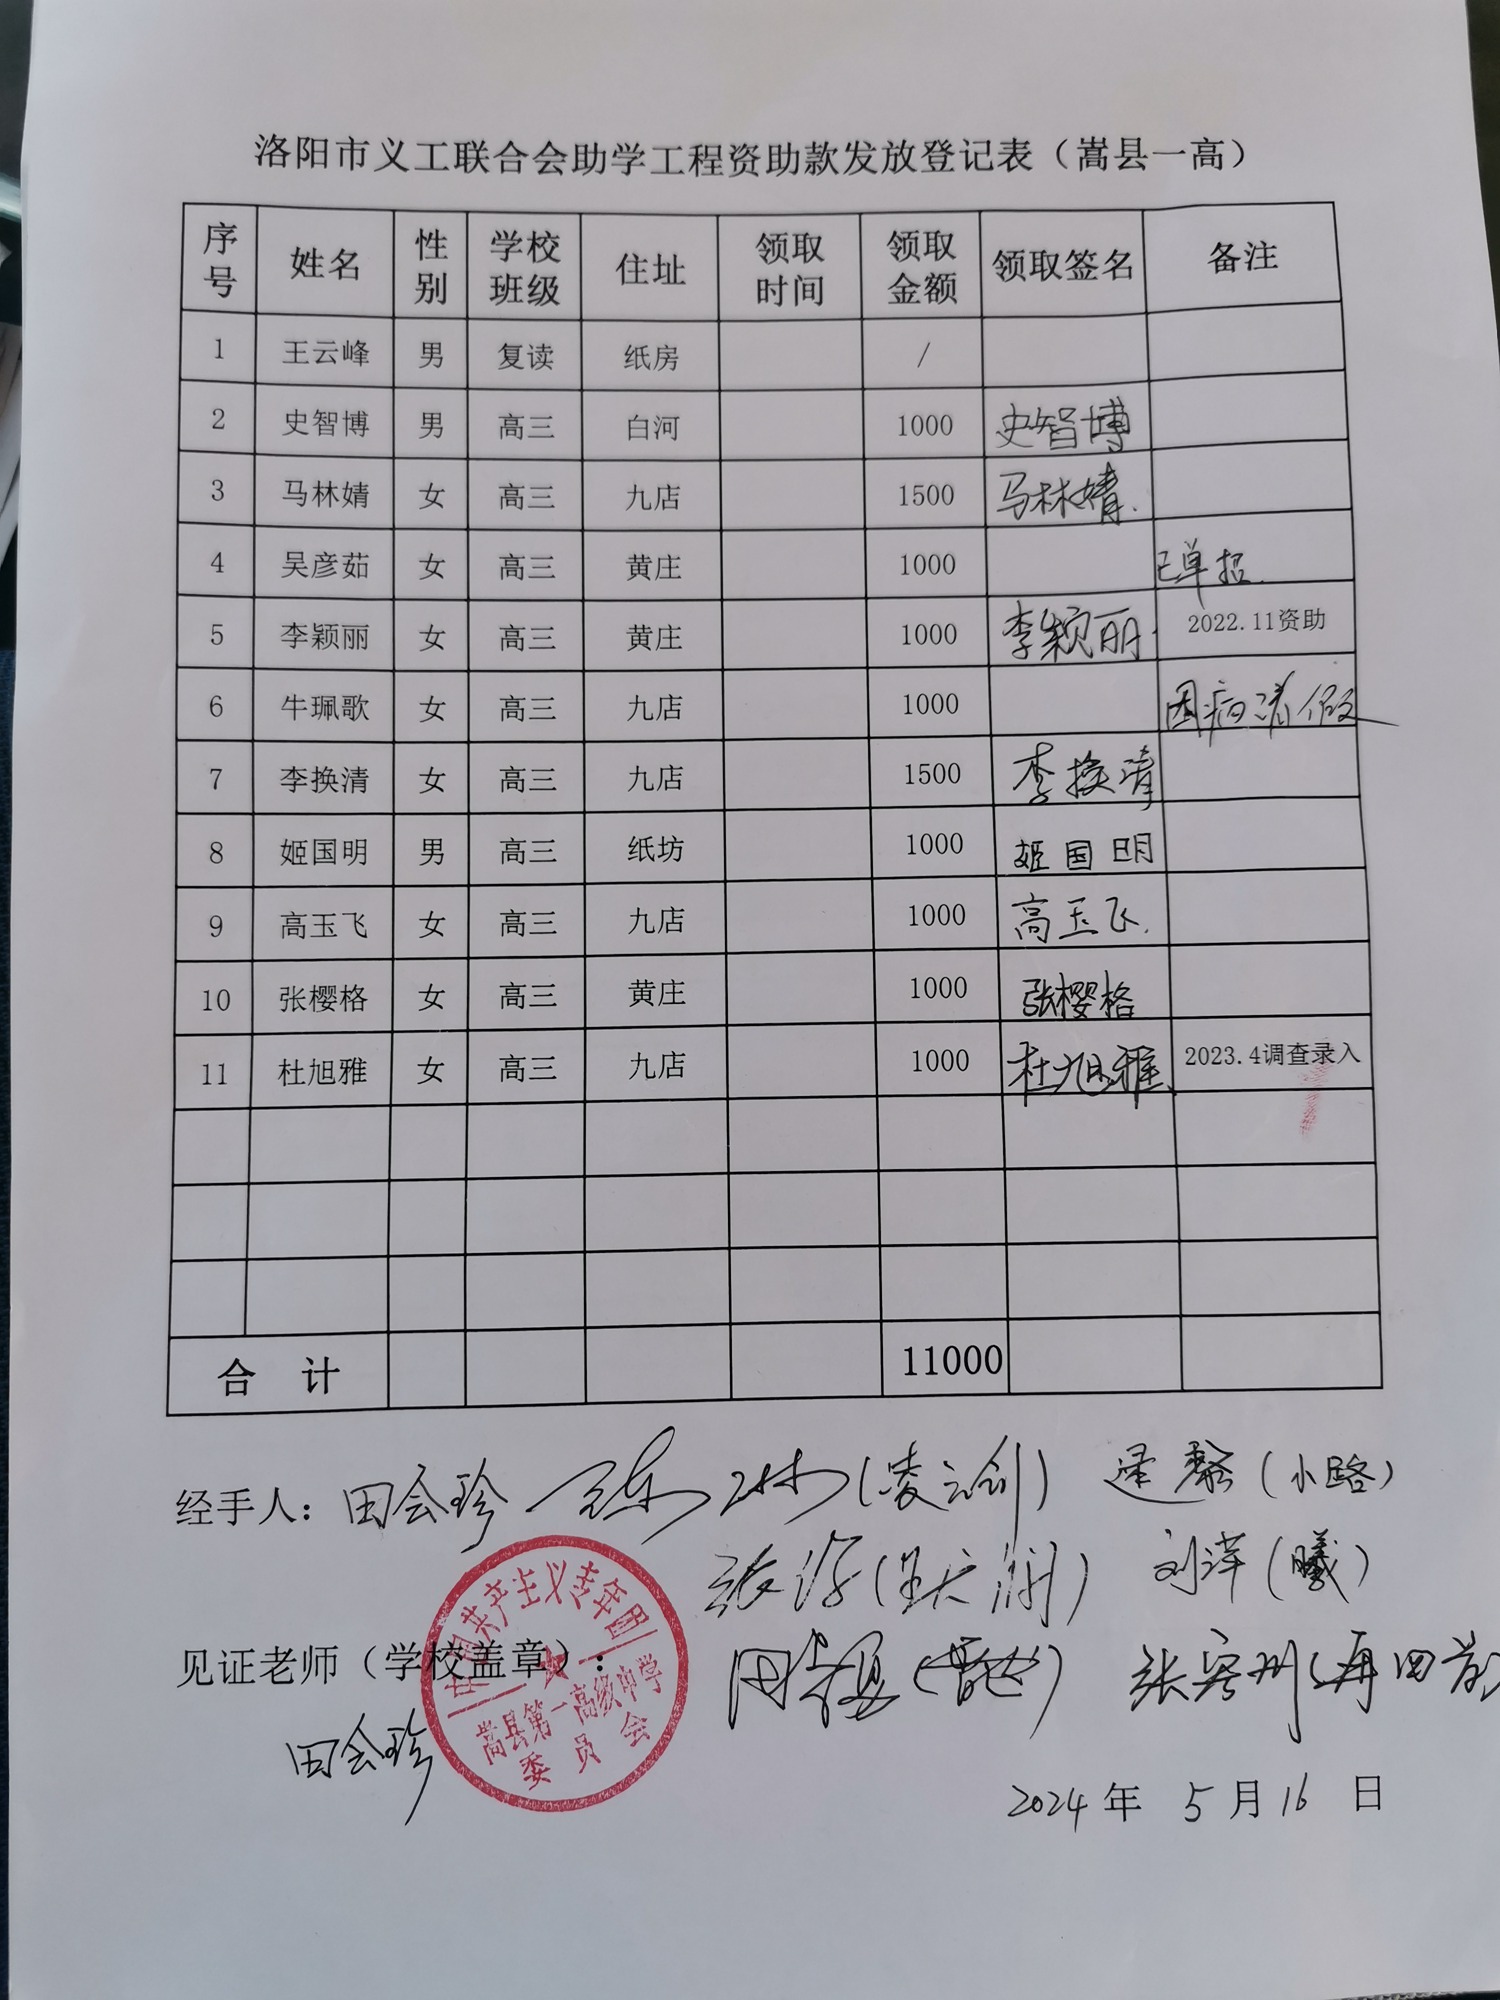 洛阳市义工联合会助学工程资助款发放登记表（嵩县一高）
序号 姓名 性别 学校班级 住址 领取时间 领取金额 领取签名 备注
1 王云峰 男 复读 纸房 /
2 史智博 男 高三 白河 1000 史智博
3 马林婧 女 高三 九店 1500 马林婧.
4 吴彦茹 女 高三 黄庄 1000 已单招.
5 李颖丽 女 高三 黄庄 1000 李颖丽. 2022.11资助
6 牛珮歌 女 高三 九店 1000 因病请假
7 李换清 女 高三 九店 1500 李换清
8 姬国明 男 高三 纸坊 1000 姬国明
9 高玉飞 女 高三 九店 1000 高玉飞.
10 张樱格 女 高三 黄庄 1000 张樱格
11 杜旭雅 女 高三 九店 1000 杜旭雅. 2023.4调查录入
合 计 11000
经手人：田会珍 （凌云剑） （小路）
刘洋（曦）
见证老师（学校盖章）：
田会珍
中国共产主义青年团
嵩县第一高级中学
委员会
2024年 5月16 日